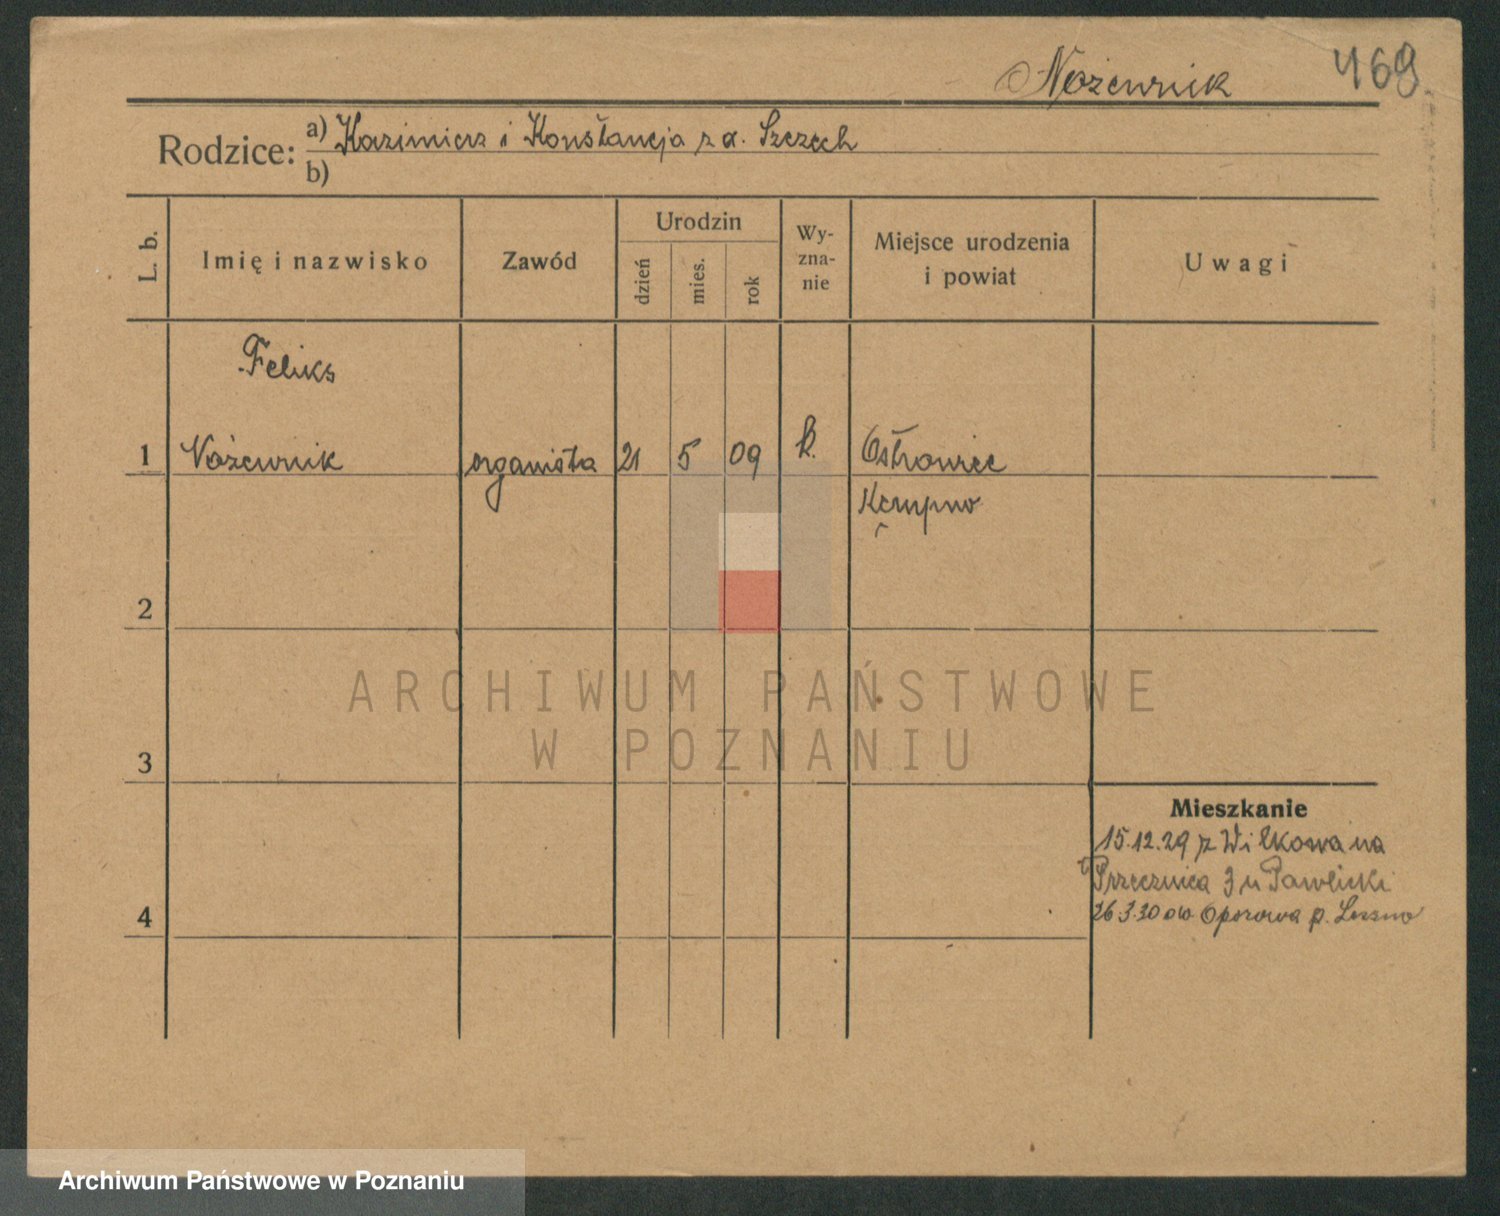 Nożewnik 469
Rodzice: a) Kazimierz i Konstancja z d. Szczech
b)
L. b. Imię i nazwisko Zawód Urodzin dzień mies. rok Wy-zna-nie Miejsce urodzenia i powiat Uwagi
Feliks
1 Nożewnik organista 21 5 09 k. Ostrowiec
Kempno
2
ARCHIWUM PAŃSTWOWE
W POZNANIU
3
Mieszkanie
15.12.29 z Wilkowa na
Przecznica 3 u Pawlicki
4 26 3.30 do Oporowa p. Leszno
Archiwum Państwowe w Poznaniu